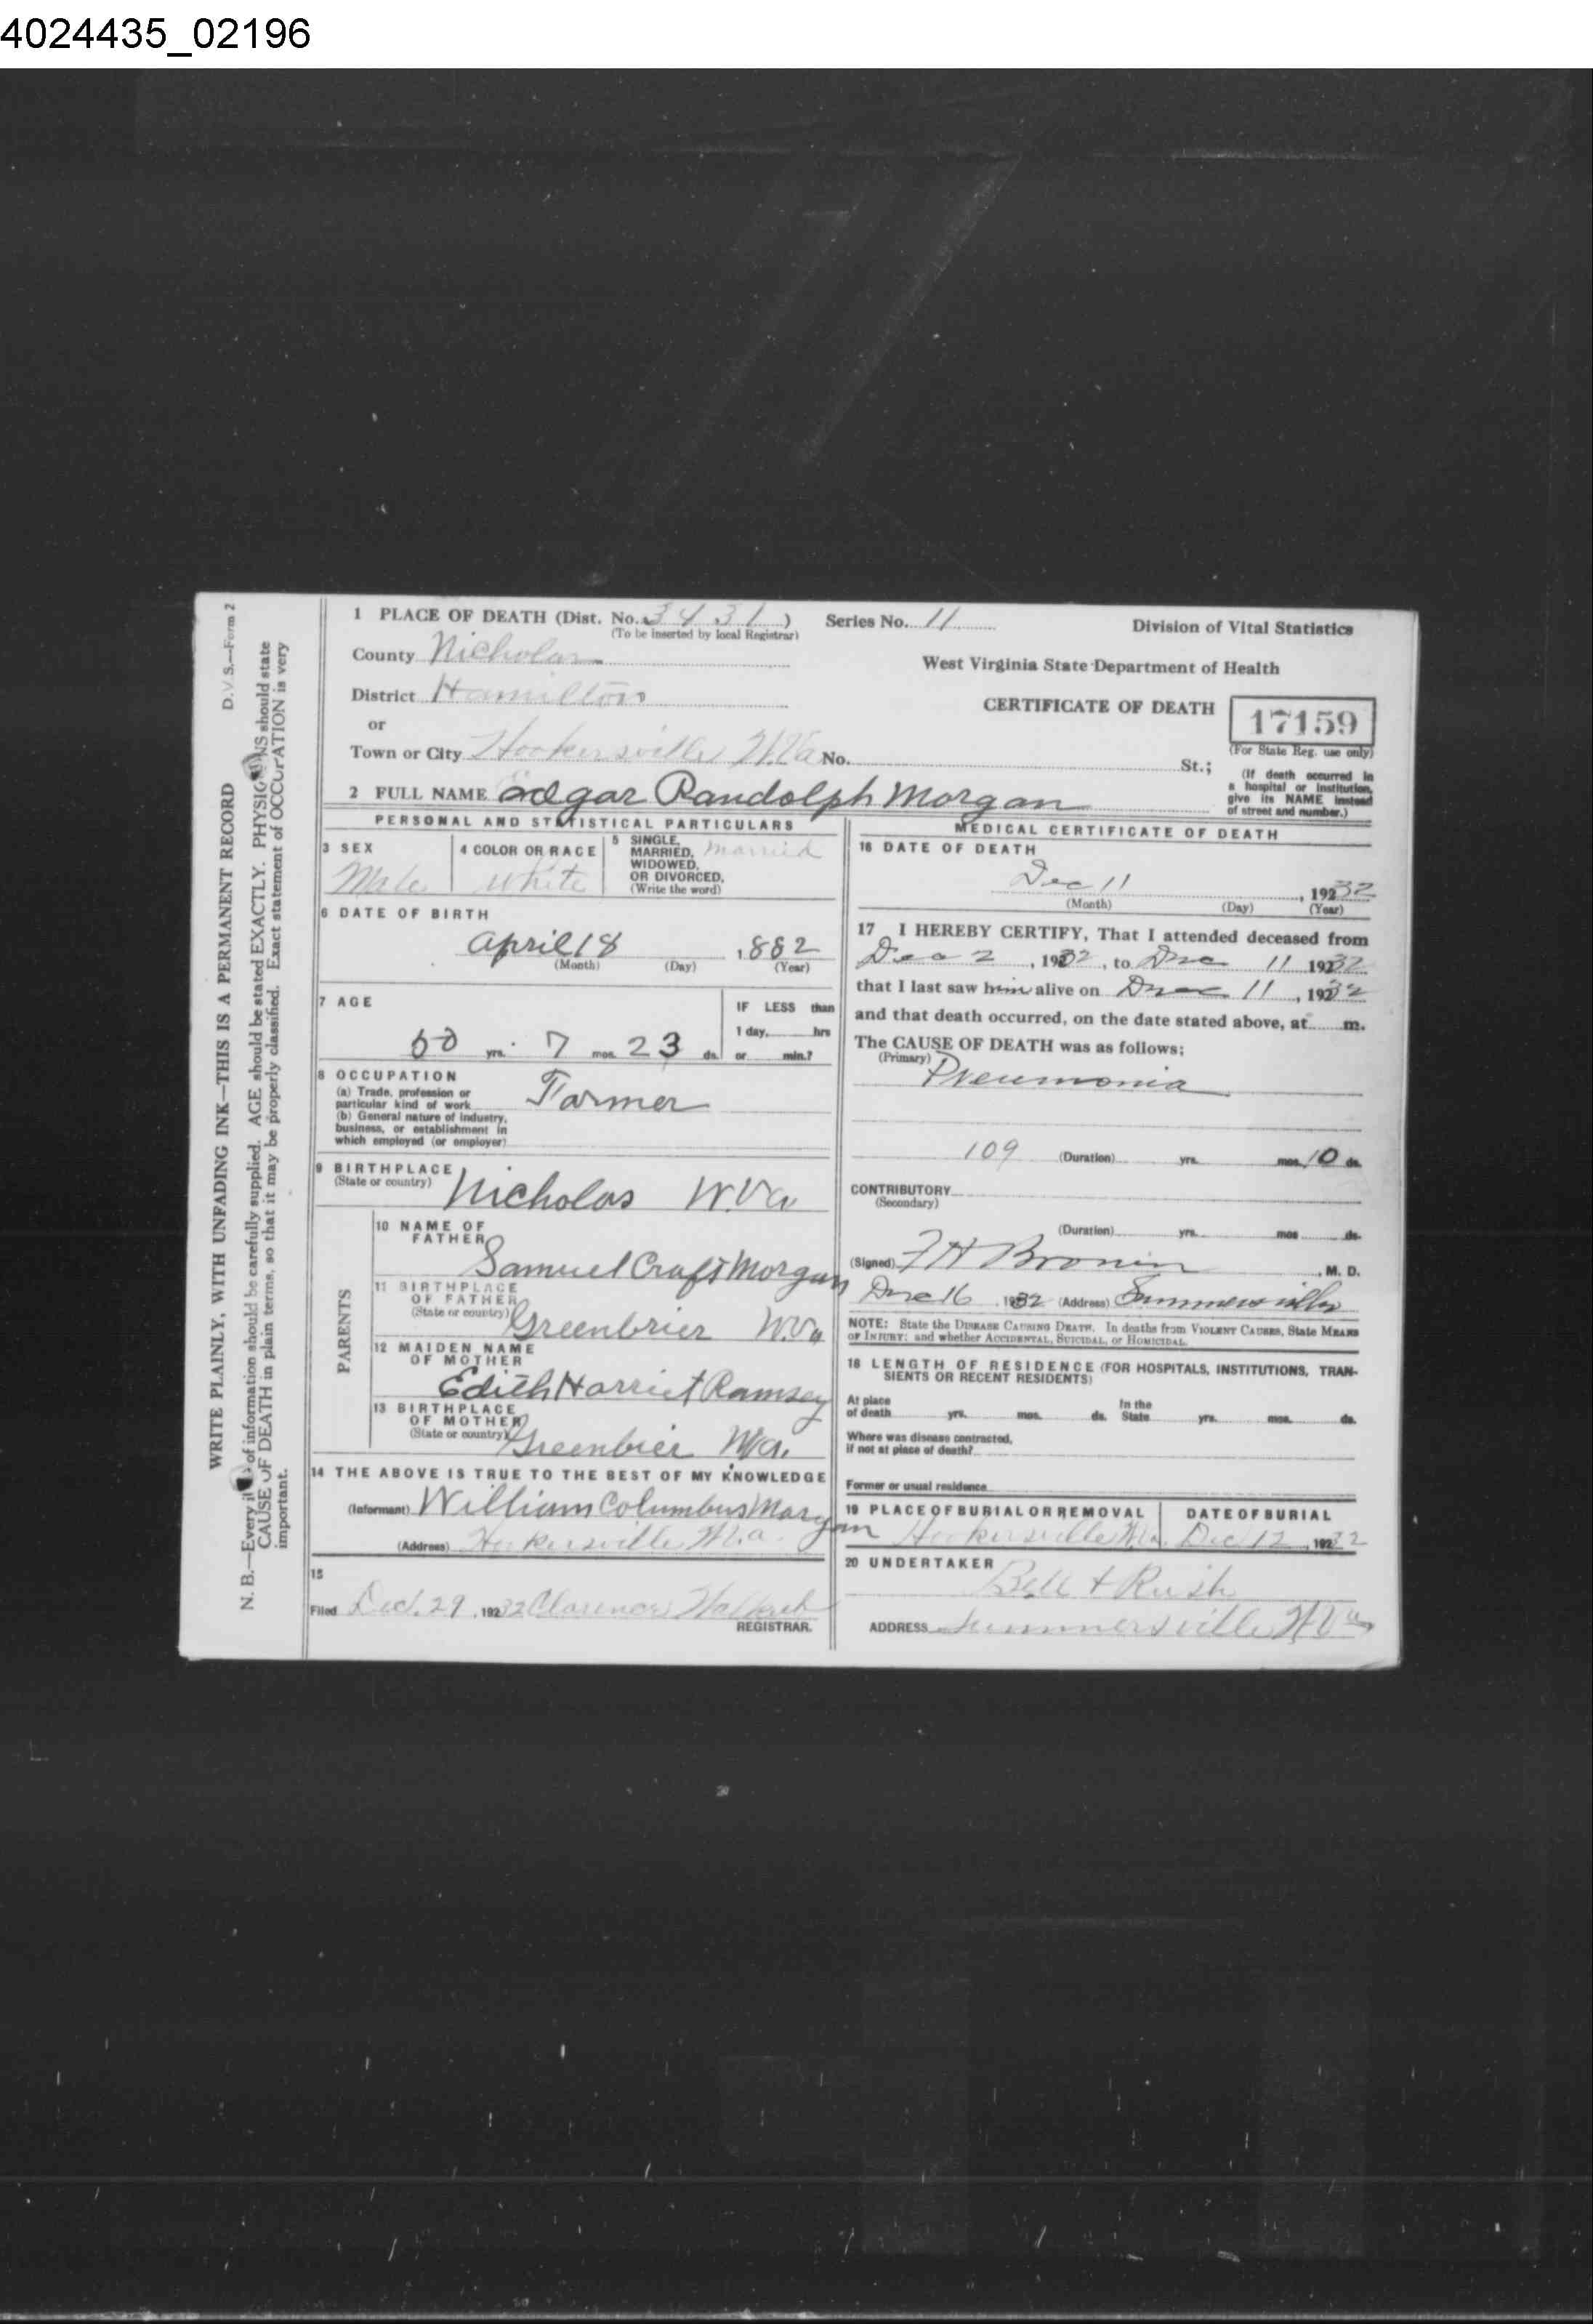 4024435_02196
D.V.S.—Form 2
WRITE PLAINLY, WITH UNFADING INK—THIS IS A PERMANENT RECORD
N. B.—Every of information should be carefully supplied. AGE should be stated EXACTLY. PHYSICIANS should state
CAUSE OF DEATH in plain terms, so that it may be properly classified. Exact statement of OCCUPATION is very
important.
1 PLACE OF DEATH (Dist. No. 3431)
(To be inserted by local Registrar)
Series No. 11
Division of Vital Statistics
County Nicholas
West Virginia State Department of Health
District Hamilton
CERTIFICATE OF DEATH
17159
(For State Reg. use only)
or
Town or City Hookersville W.Va No. St.;
(If death occurred in
a hospital or institution,
give its NAME instead
of street and number.)
2 FULL NAME Edgar Randolph Morgan
PERSONAL AND STATISTICAL PARTICULARS
3 SEX
Male
4 COLOR OR RACE
White
5 SINGLE,
MARRIED,
WIDOWED,
OR DIVORCED,
(Write the word)
Married
6 DATE OF BIRTH
April 18 , 1882
(Month) (Day) (Year)
7 AGE
50 yrs. 7 mos. 23 ds.
IF LESS than
1 day, hrs
or min.?
8 OCCUPATION
(a) Trade, profession or
particular kind of work
Farmer
(b) General nature of industry,
business, or establishment in
which employed (or employer)
9 BIRTHPLACE
(State or country)
Nicholas W.Va
PARENTS
10 NAME OF
FATHER
Samuel Craft Morgan
11 BIRTHPLACE
OF FATHER
(State or country)
Greenbrier W.Va
12 MAIDEN NAME
OF MOTHER
Edith Harriet Ramsey
13 BIRTHPLACE
OF MOTHER
(State or country)
Greenbrier W.Va.
14 THE ABOVE IS TRUE TO THE BEST OF MY KNOWLEDGE
(Informant) William Columbus Morgan
(Address) Hookersville W.Va.
15
Filed Dec. 29, 1932 Clarence
REGISTRAR.
MEDICAL CERTIFICATE OF DEATH
16 DATE OF DEATH
Dec 11 , 19232
(Month) (Day) (Year)
17 I HEREBY CERTIFY, That I attended deceased from
Dec 2, 1932, to Dec 11 1932
that I last saw him alive on Dec 11, 1932
and that death occurred, on the date stated above, at m.
The CAUSE OF DEATH was as follows:
(Primary)
Pneumonia
109 (Duration) yrs. mos. 10 ds.
CONTRIBUTORY
(Secondary)
(Duration) yrs. mos ds.
(Signed) F H , M. D.
Dec 16, 1932 (Address) Summersville
NOTE: State the DISEASE CAUSING DEATH. In deaths from VIOLENT CAUSES, State MEANS
OF INJURY; and whether ACCIDENTAL, SUICIDAL, or HOMICIDAL.
18 LENGTH OF RESIDENCE (FOR HOSPITALS, INSTITUTIONS, TRAN-
SIENTS OR RECENT RESIDENTS)
At place
of death yrs. mos. ds.
In the
State yrs. mos. ds.
Where was disease contracted,
if not at place of death?
Former or usual residence
19 PLACE OF BURIAL OR REMOVAL
Hookersville W.Va.
DATE OF BURIAL
Dec 12, 1932
20 UNDERTAKER
Bell + Rush
ADDRESS Summersville W Va